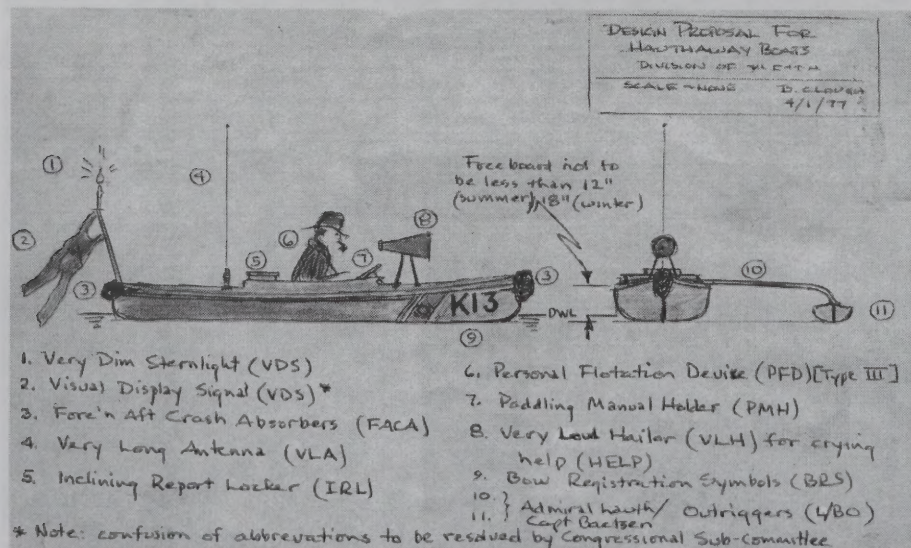 DESIGN PROPOSAL FOR
HAUTHAWAY BOATS
DIVISION OF
SCALE ~ NONE D. CLOUGH
4/1/77
Freeboard not to
be less than 12"
(summer), 18" (winter)
1
2
3
4
5
6
7
8
3
K13
DWL
9
10
11
1. Very Dim Sternlight (VDS)
2. Visual Display Signal (VDS)*
3. Fore'n Aft Crash Absorbers (FACA)
4. Very Long Antenna (VLA)
5. Inclining Report Locker (IRL)
6. Personal Flotation Device (PFD) [Type III]
7. Paddling Manual Holder (PMH)
8. Very Loud Hailer (VLH) for crying
help (HELP)
9. Bow Registration Symbols (BRS)
10. } Admiral Lauth/ Outriggers (L/BO)
11. } Capt Baelsen
* Note: confusion of abbrevations to be resolved by Congressional Sub-committee